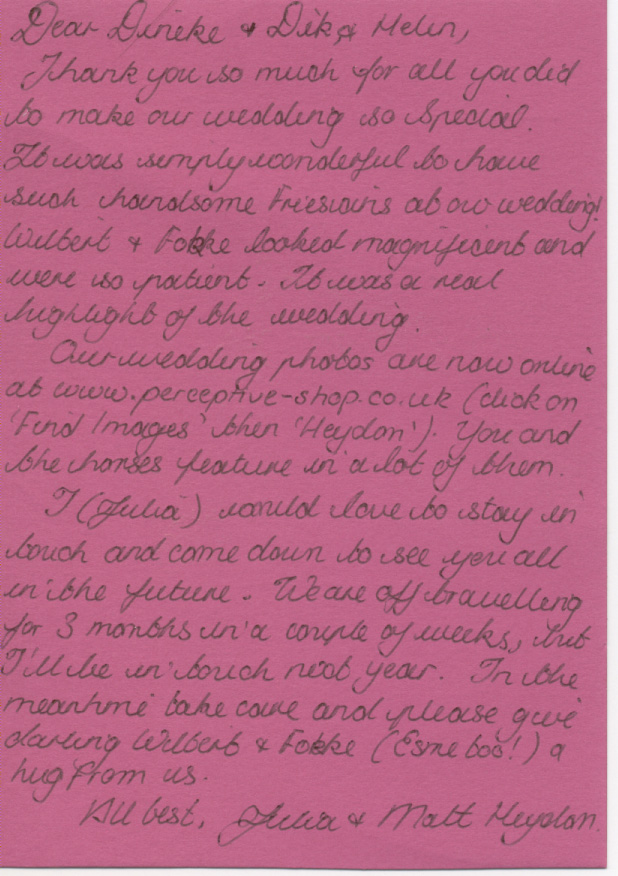 Dear Dineke & Dik & Helen,
Thank you so much for all you did
to make our wedding so special.
It was simply wonderful to have
such handsome Friesians at our wedding!
Wilbert & Fokke looked magnificent and
were so patient. It was a real
highlight of the wedding.
Our wedding photos are now online
at www.perceptive-shop.co.uk (click on
'Find Images' then 'Heydon'). You and
the horses feature in a lot of them.
I (Julia) would love to stay in
touch and come down to see you all
in the future. We are off travelling
for 3 months in a couple of weeks, but
I'll be in touch next year. In the
meantime take care and please give
darling Wilbert & Fokke (Esme too!) a
hug from us.
All best, Julia & Matt Heydon.